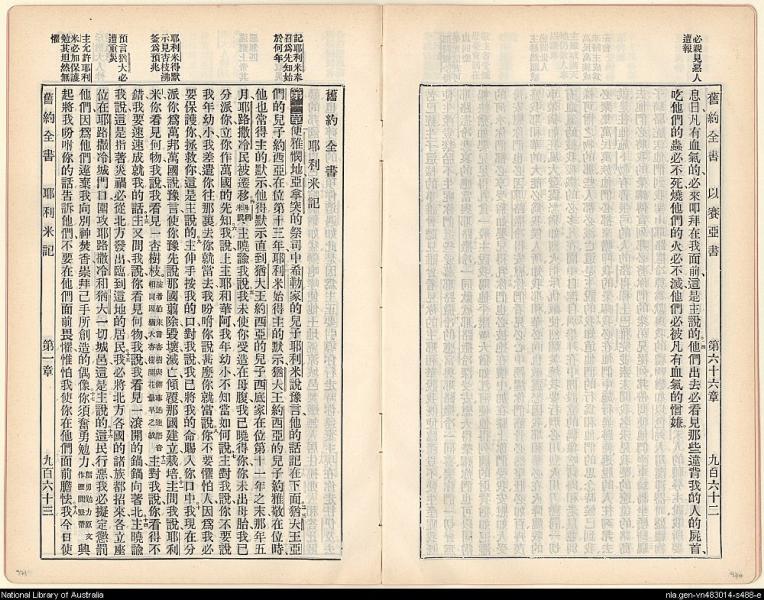 必親見惡人
遭報
舊約全書 以賽亞書 第六十六章 九百六十二
息日凡有血氣的必來叩拜在我面前這是主說的他們出去必看見那些違背我的人的屍首
吃他們的蟲必不死燒他們的火必不滅他們必被凡有血氣的憎嫌
記耶利米奉
召為先知始
於何年
耶利米得默
示見杏枝沸
釜為預兆
預言猶大必
遭重災
主允許耶利
米必加保護
勉其坦然無
懼
舊約全書
耶利米記
第一章 便雅憫地亞拿突的祭司中希勒家的兒子耶利米說豫言他的話記在下面猶大王亞
們的兒子約西亞在位第十三年耶利米始得主的默示猶大王約西亞的兒子約雅敬在位時
他也當得主的默示他得默示直到猶大王約西亞的兒子西底家在位第十一年之末那年五
月耶路撒冷民被遷移 主曉諭我說我未使你受造在母腹我已曉得你你未出母胎我已
分派你立你作萬國的先知我說上主耶和華阿我年幼小不知當如何說主對我說你不要說
我年幼小我差遣你往那裏去你就當去我吩咐你說甚麼你就當說你不要懼怕人因為我必
要保護你拯救你這是主說的主伸手按我的口對我說我已將我的命賜入你口中我現在分
派你為萬邦萬國說豫言的你豫先說那國翦除毀壞滅亡傾覆那國建立栽培主問我說耶利
米你看見何物我說我看見一杏樹枝 主對我說你看得不
錯我要速速成就我的話主又問我說你看見何物我說我看見一滾開的鍋鍋向著北主曉諭
我說這是指著災禍必從北方發出臨到這地的居民我必將北方各國的諸族都招來各立座
位在耶路撒冷城門口圍攻耶路撒冷和猶大一切城邑這是主說的這民行惡我必擬定懲罰
他們因為他們違棄我向別神焚香崇拜己手所創造的偶像你須奮勇勉力 興
起將我吩咐你的話告訴他們不要在他們面前畏懼惟怕我使你在他們面前膽怯我今日使
舊約全書 耶利米記 第一章 九百六十三
National Library of Australia
nla.gen-vn483014-s488-e